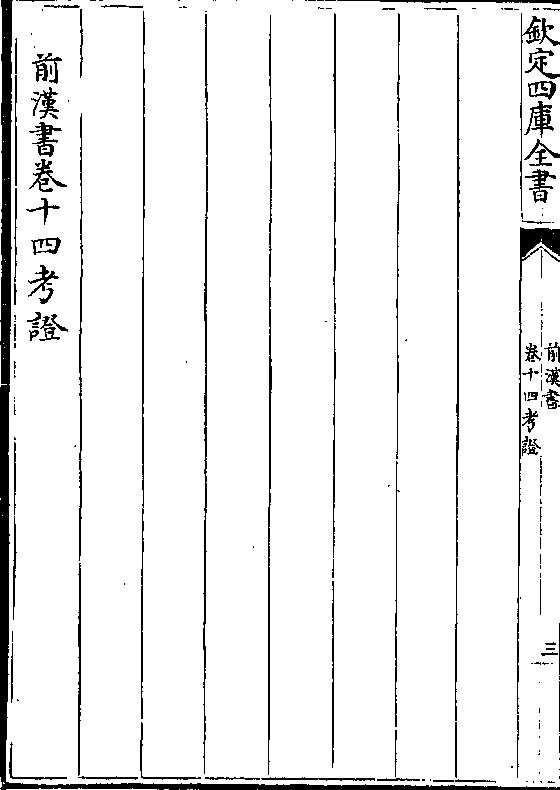 欽定四庫全書
前漢書
卷十四考證
三
前漢書卷十四考證